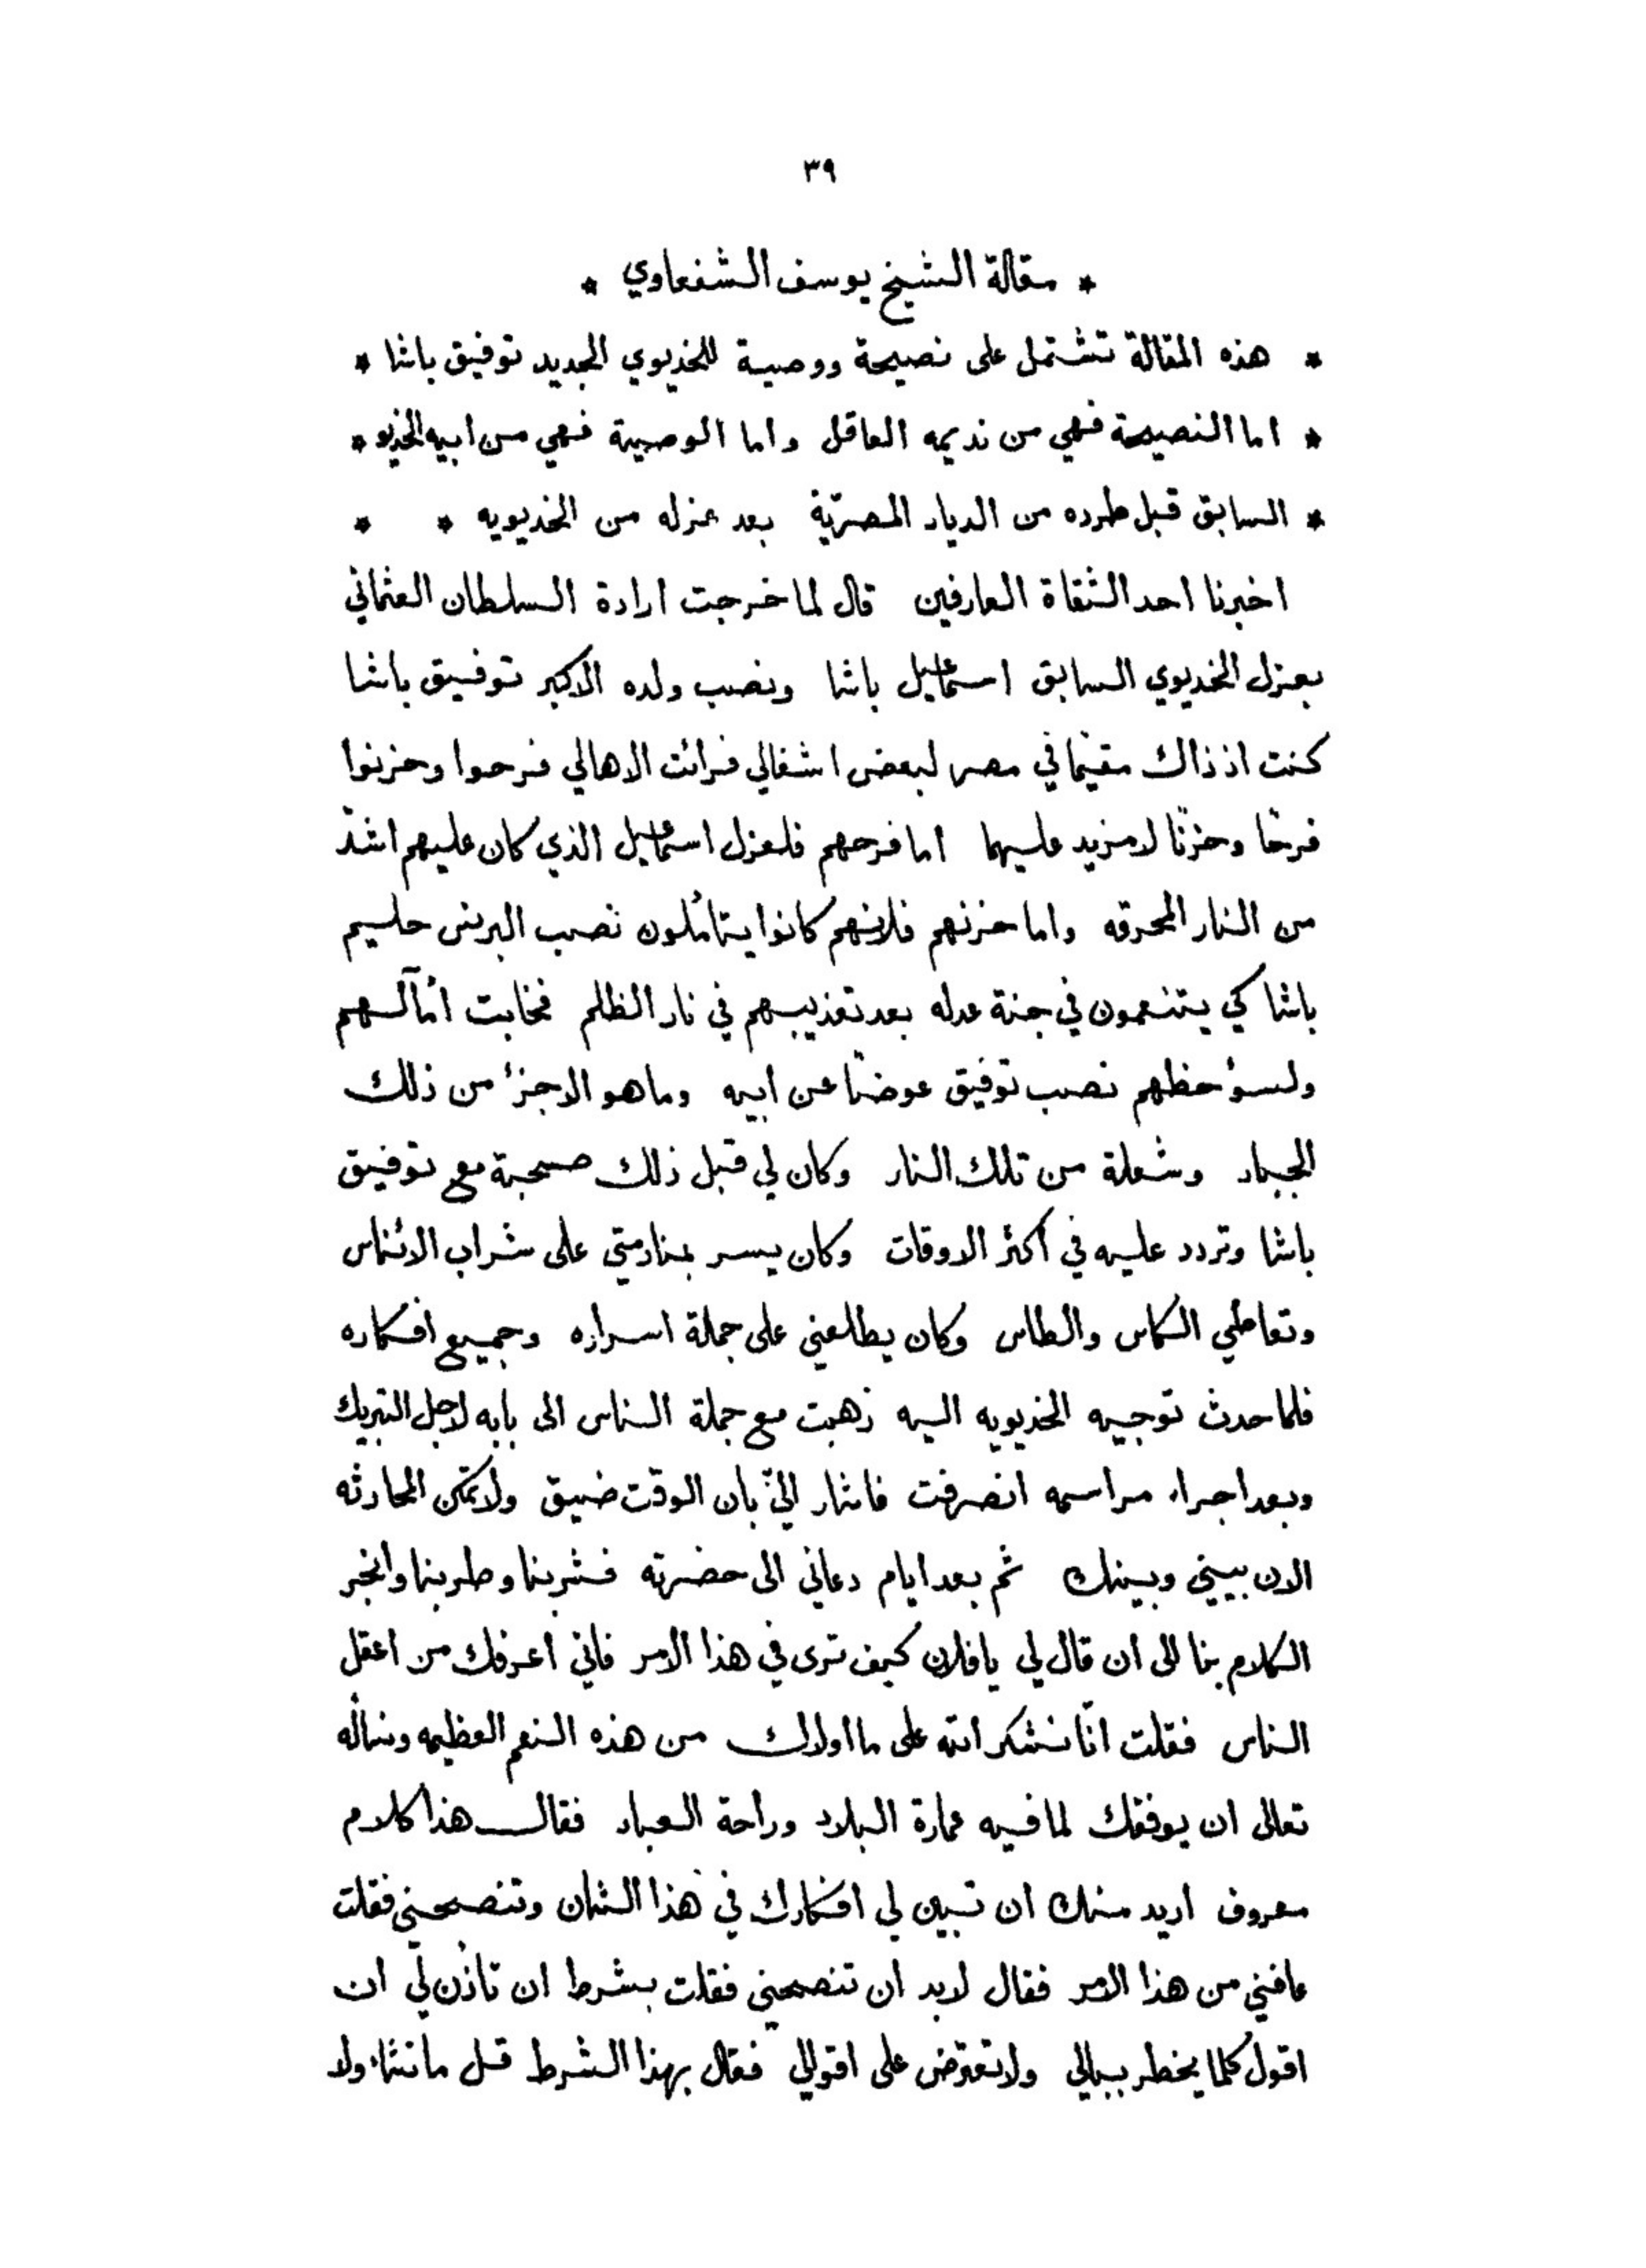 ٣٩
* مقالة الشيخ يوسف الشفعاوي *
* هذه المقالة تشتمل على نصيحة ووصية للخديوي الجديد توفيق باشا *
* اما النصيحة فهي من نديمه العاقل واما الوصية فهي من ابيه الخديو *
* السابق قبل طرده من الديار المصريّة بعد عزله من الخديويه * *
اخبرنا احد الثقاة العارفين قال لما خرجت ارادة السلطان العثماني
بعزل الخديوي السابق اسمٰعيل باشا ونصب ولده الاكبر توفيق باشا
كنت اذ ذاك مقيمًا في مصر لبعض اشغالي فرائت الاهالي فرحوا وحزنوا
فرحًا وحزنًا لا مزيد عليهما اما فرحهم فلعزل اسمٰعيل الذي كان عليهم اشدّ
من النار المحرقه واما حزنهم فلانهم كانوا يتأملون نصب البرنس حليم
باشا كي يتنعمون في جنة عدله بعد تعذيبهم في نار الظلم فخابت أمآلهم
ولسؤ حظهم نصب توفيق عوضًا عن ابيه وما هو الا جزء من ذلك
الجبار وشعلة من تلك النار وكان لي قبل ذلك صحبة مع توفيق
باشا وتردد عليه في أكثر الاوقات وكان يسر بمنادمتي على شراب الائناس
وتعاطي الكاس والطاس وكان يطلعني على جملة اسراره وجميع افكاره
فلما حدث توجيه الخديويه اليه ذهبت مع جملة الناس الى بابه لاجل التبريك
وبعد اجراء مراسمه انصرفت فاشار اليّ بأن الوقت ضيق ولا تمكن المحادثه
الان بيني وبينك ثم بعد ايام دعاني الى حضرته فشربنا وطربنا وانجر
الكلام بنا الى ان قال لي يا فلان كيف ترى في هذا الامر فاني أعرفك من اعقل
الناس فقلت انّا نشكر الله على ما اولاك من هذه النعم العظيمه ونسأله
تعالى ان يوفقك لما فيه عمارة البلاد وراحة العباد فقال هذا كلام
معروف اريد منك ان تبين لي افكارك في هذا الشان وتنصحني فقلت
عافني من هذا الامر فقال لابد ان تنصحني فقلت بشرط ان تأذن لي ان
اقول كلما يخطر ببالي ولا تعترض على اقوالي فقال بهذا الشرط قل ما تشاء ولا